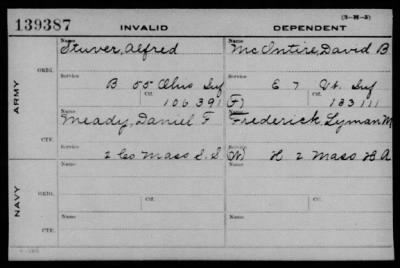 (3-H-3)
139387 INVALID DEPENDENT
Name Name
Stuver, Alfred McIntire, David B
ORIG.
Service Service
B 55 Ohio Inf E 7 Vt. Inf
Ctf. Ctf.
106391 (F) 133111
ARMY
Name Name
Meady, Daniel F Frederick, Lyman M
CTF.
Service Service
2 Co Mass S.S. (W) H 2 Mass H A
Name Name
ORIG.
Service Service
Ctf. Ctf.
NAVY
Name Name
CTF.
Service Service